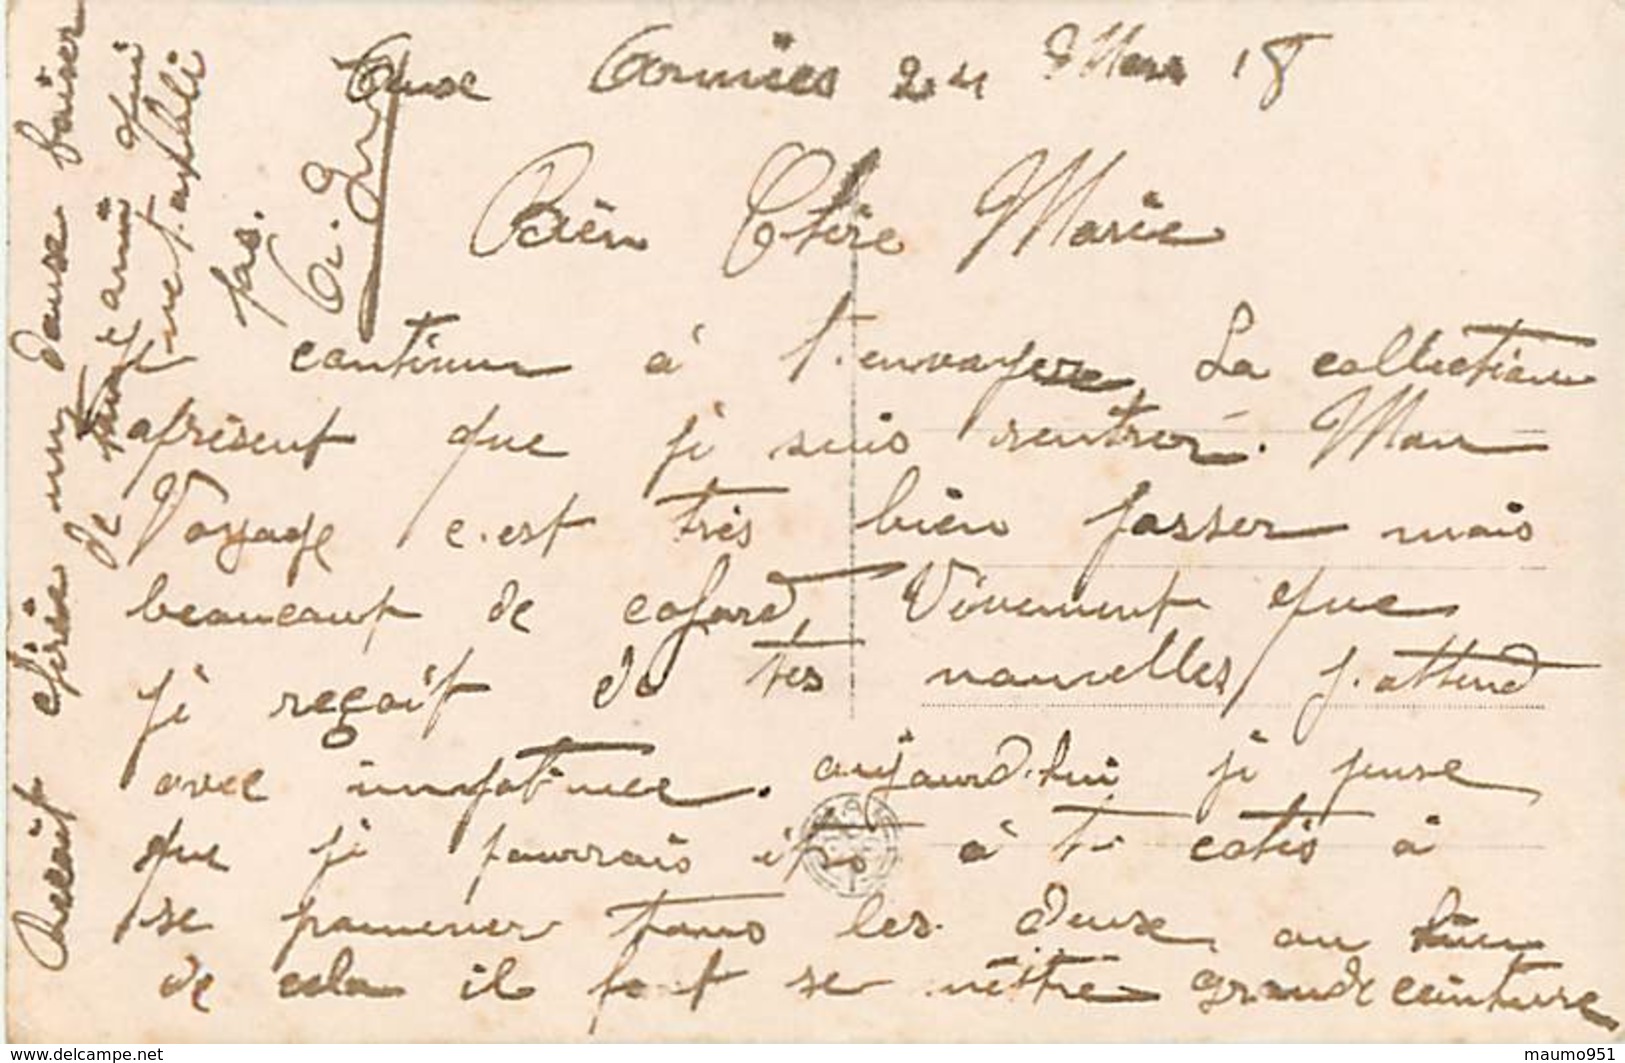 Aux Armées 24 Mars 18
Bien Chère Marie
Je continue à t'envoyer La collection
aprésent que je suis rentrer. Mon
Voyage c'est très bien passer mais
beaucoup de cafard, Vivement que
je reçoit de tes nouvelles j'attend
avec impatience. aujourd'hui je pense
que je pourrais être à te cotés à
se pomener tous les deux, au lieu
de cela il faut se mêttre grande ceinture
Recoit chérie un doux baiser
de ami qui
ne t'oubli
pas.
www.delcampe.net
maumo951